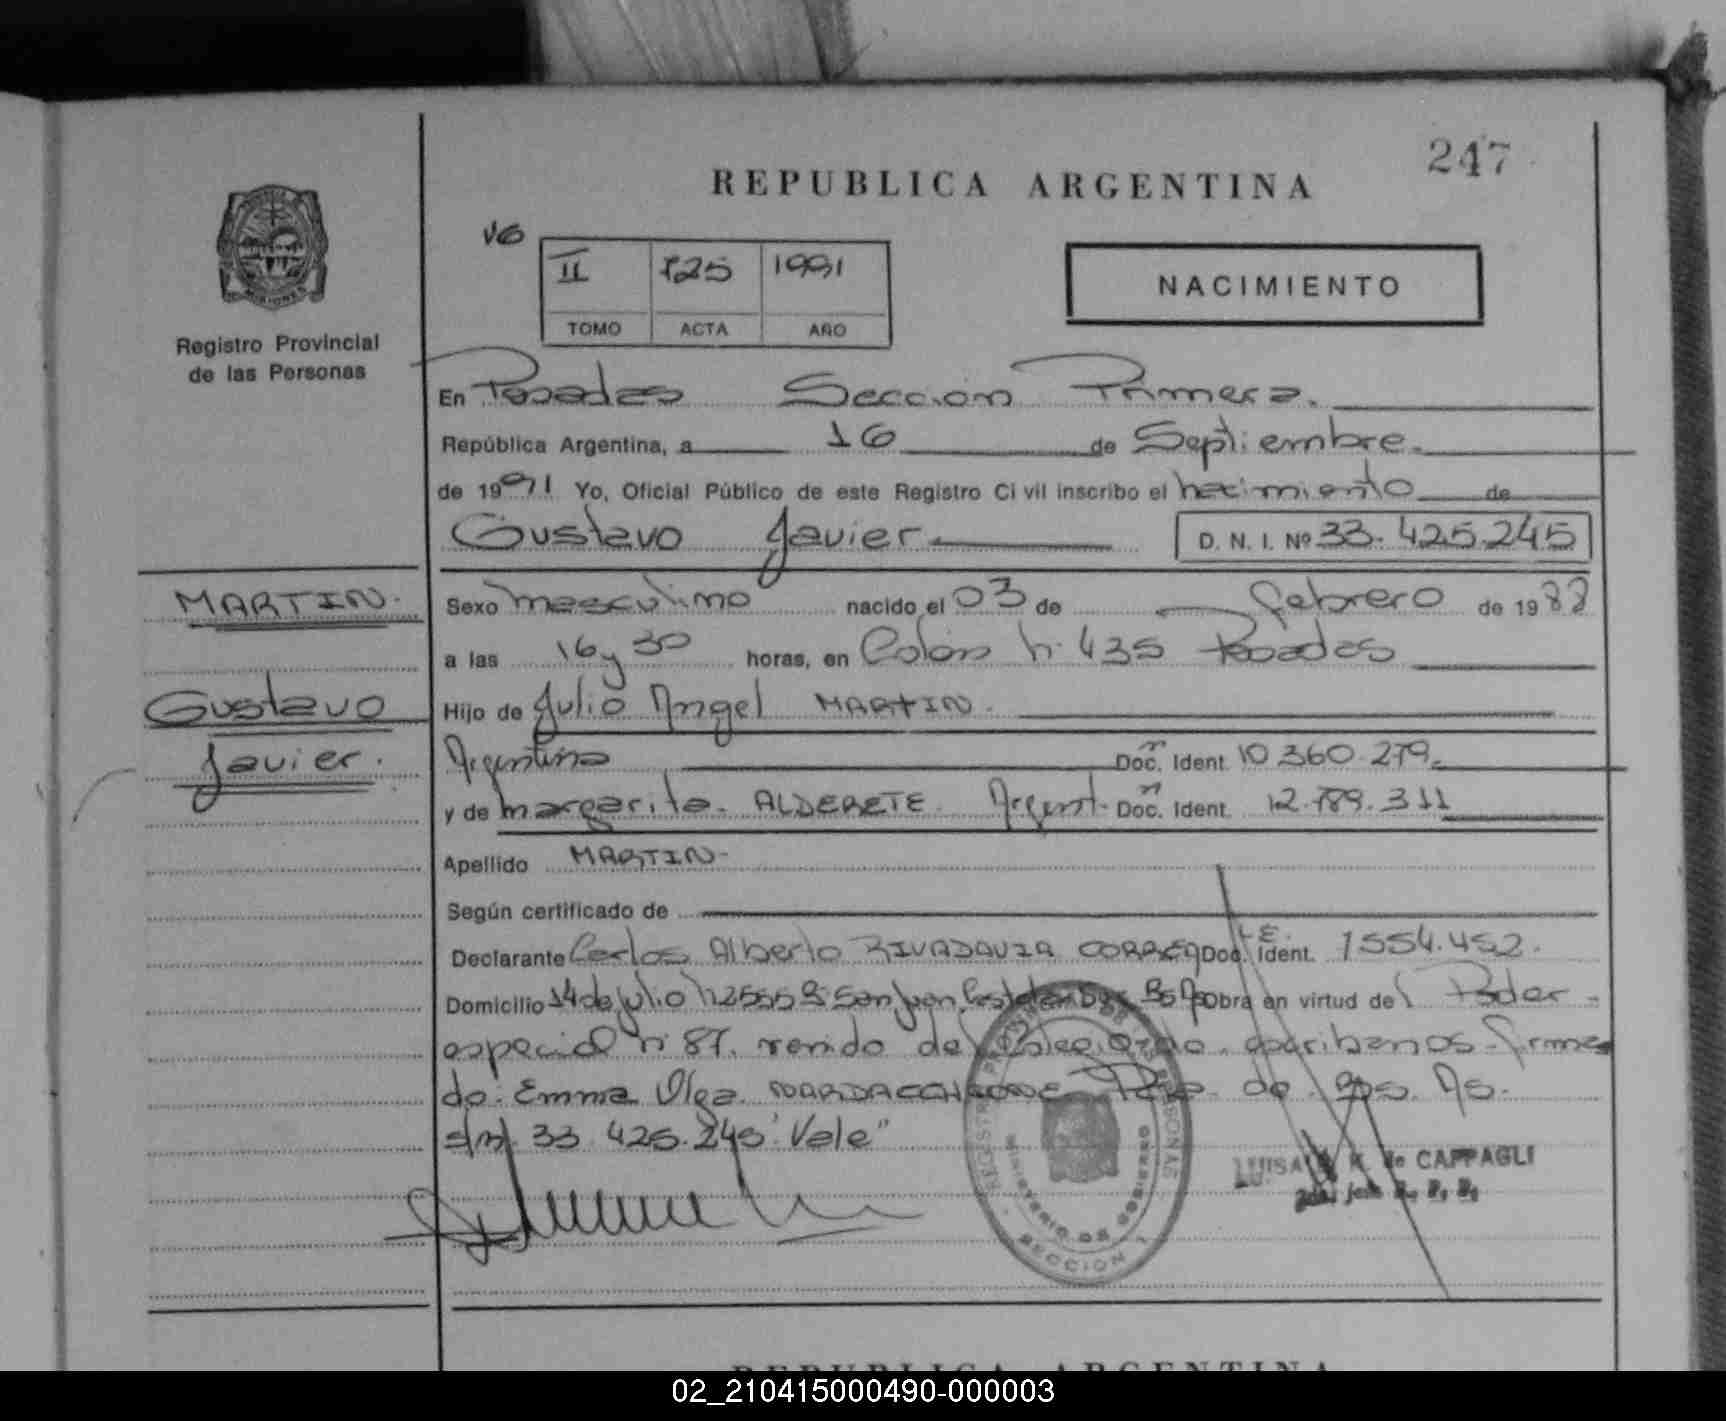 247
REPUBLICA ARGENTINA
V6
II 725 1991
TOMO ACTA AÑO
NACIMIENTO
MISIONES
Registro Provincial
de las Personas
En Posadas Sección Primera.
República Argentina, a 16 de Septiembre.
de 1991 Yo, Oficial Público de este Registro Civil inscribo el nacimiento de
Gustavo Javier D. N. I. Nº 33.425.245
MARTIN.
Gustavo
Javier.
Sexo masculino nacido el 03 de febrero de 1988
a las 16 y 30 horas, en Colón n. 435 Posadas
Hijo de Julio Angel MARTIN.
Argentino Doc. Ident. 10.360.279
y de margarita. ALDERETE. Argent. Doc. Ident. 12.789.311
Apellido MARTIN.
Según certificado de
Declarante Carlos Alberto RIVADAVIA CORREA Doc. Ident. L.E. 1554.452.
Domicilio 14 de julio n 2555 San Juan Bs As Obra en virtud del Poder
especial n 87. del escribanos firma
do. Emma Olga NARDACCHIONE de Bs. As.
33.425.245 "Vale"
REGISTRO PROVINCIAL DE LAS PERSONAS
MINISTERIO DE GOBIERNO
SECCION 1
LUISA K. de CAPPAGLI
2da. Jefe R. P. P.
REPUBLICA ARGENTINA
02_210415000490-000003